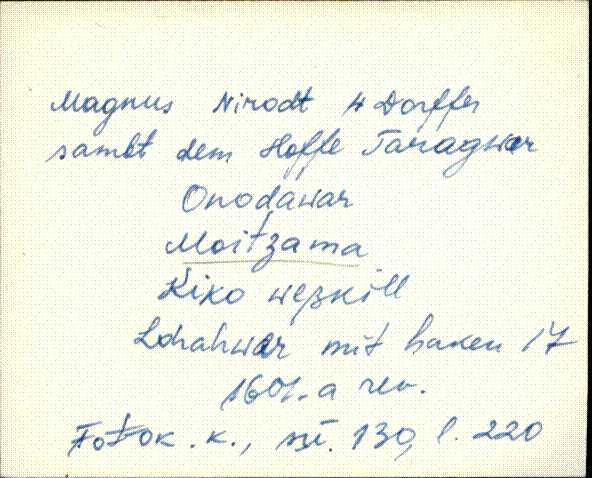 Magnus Nirodt 4 Dörffer
sambt dem Hoffe Taragwer
Onodawar
Moitzama
Kiko weßkill
Lohahwer mit haken 17
1601. a rev.
Fotok. k., nr. 130, l. 220